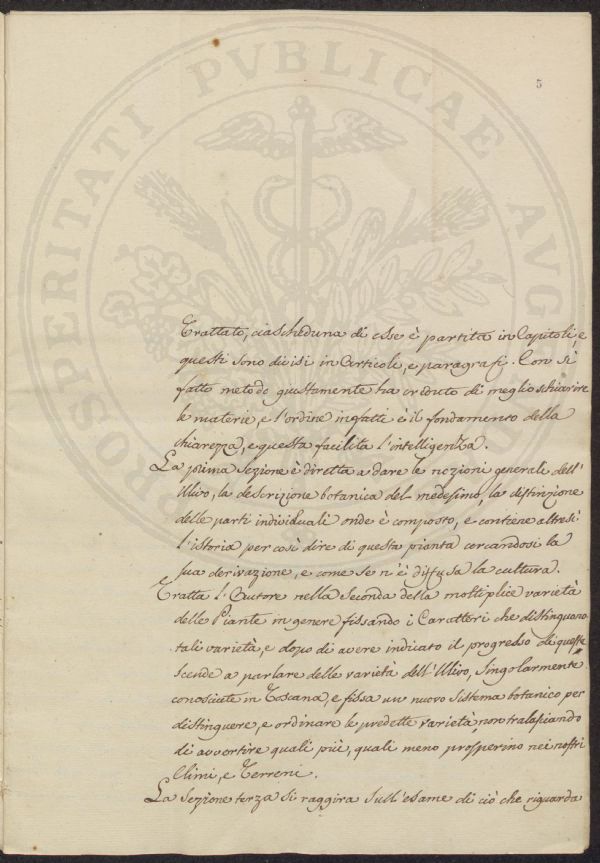 PROSPERITATI PVBLICAE AVG
5
Trattato, ciascheduna di esse è partita in Capitoli, e
questi sono divisi in Articoli, e paragrafi. Con sì
fatto metodo giustamente ha creduto di meglio schiarire
le materie, e l'ordine infatti è il fondamento della
chiarezza, e questa facilita l'intelligenza.
La prima Sezione è diretta a dare le nozioni generale dell'
Ulivo, la descrizione botanica del medesimo, la distinzione
delle parti individuali onde è composto, e contiene altresì
l'istoria per così dire di questa pianta cercandosi la
sua derivazione, e come se n'è diffusa la cultura.
Tratta l'Autore nella Seconda della moltiplice varietà
delle Piante in genere fissando i Caratteri che distinguono
tali varietà, e dopo di avere indicato il progresso di queste
scende a parlare delle varietà dell'Ulivo, singolarmente
conosciute in Toscana, e fissa un nuovo sistema botanico per
distinguere, e ordinare le predette varietà non tralasciando
di avvertire quali più, quali meno prosperino nei nostri
Climi, e Terreni.
La Sezione terza si raggira sull'esame di ciò che riguarda